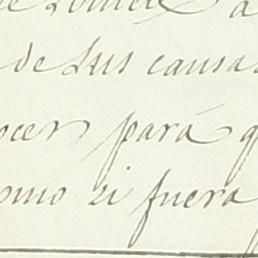 de sus causa
ocer para q
omo si fuera